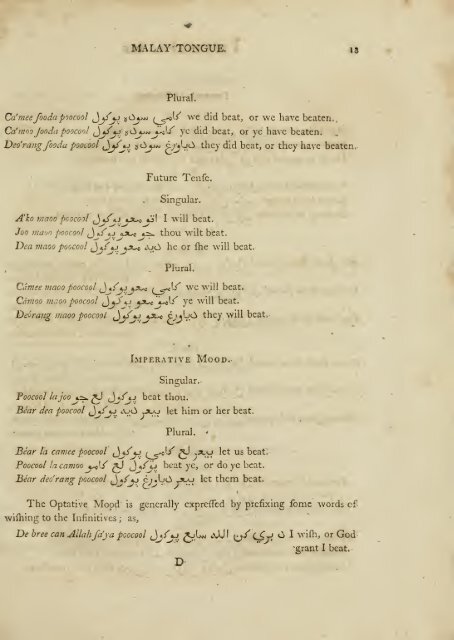 MALAY TONGUE. 13
Plural.
Ca'mee ſooda poocool كامي سوده ڤوكول we did beat, or we have beaten.
Ca'moo ſooda poocool كامو سوده ڤوكول ye did beat, or ye have beaten.
Deo'rang ſooda poocool دياورغ سوده ڤوكول they did beat, or they have beaten.
Future Tenſe.
Singular.
A'ko maoo poocool اقو معو پوكول I will beat.
Joo maoo poocool جو معو پوكول thou wilt beat.
Dea maoo poocool ديد معو پوكول he or ſhe will beat.
Plural.
Cámee maoo poocool كامي معو پوكول we will beat.
Cámoo maoo poocool كامو معو پوكول ye will beat.
Deórang maoo poocool دياورغ معو پوكول they will beat.
IMPERATIVE MOOD.
Singular.
Poocool la joo پوكول لع جو beat thou.
Béar dea poocool بيعر ديد پوكول let him or her beat.
Plural.
Béar la camee poocool بيعر لع كامي پوكول let us beat.
Poocool la camoo پوكول لع كامو beat ye, or do ye beat.
Béar deo'rang poocool بيعر دياورغ پوكول let them beat.
The Optative Mood is generally expreſſed by prefixing ſome words of
wiſhing to the Infinitives; as,
De bree can Allah ſa'ya poocool د بري كن الله سايع پوكول I wiſh, or God
grant I beat.
D